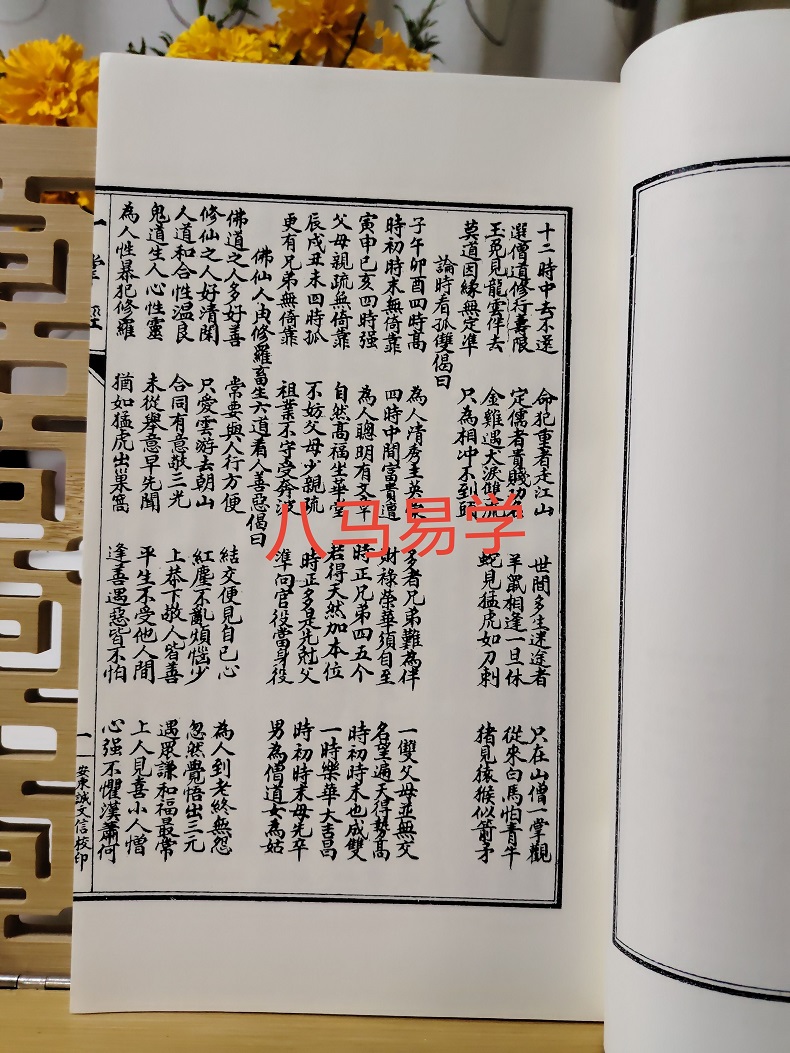 十二時中去不還 命犯重者走江山 世間多生迷途者 只在山僧一掌觀
選僧道修行壽限 定儒者貴賤功名 羊鼠相逢一旦休 從來白馬怕青牛
玉兔見龍雲伴去 金雞遇犬淚雙流 蛇見猛虎如刀刺 猪見猿猴似箭矛
莫道因緣無定準 只為相冲不到頭
論時看孤雙偈曰
子午卯酉四時高 為人清秀主英 多者兄弟難為伴 一雙父母並無交
時初時末無倚靠 四時中間富貴遭 財祿榮華須自至 名望遍天得勢高
寅申巳亥四時强 為人聰明有文章 時正兄弟四五个 時初時末也成雙
父母親疏無倚靠 自然高福坐華堂 若得天然加本位 一時樂華大吉昌
辰戌丑未四時孤 不妨父母少親疏 時正多是先尅父 時初時末母先卒
更有兄弟無倚靠 祖業不守受奔波 準向官役當身役 男為僧道女為姑
佛仙人修羅畜生六道看人善惡偈曰
佛道之人多好善 常要與人行方便 結交便見自己心 為人到老終無怨
修仙之人好清閑 只愛雲游去朝山 紅塵不亂煩惱少 忽然覺悟出三元
人道和合性温良 合同有意敬三光 上恭下敬人皆善 遇眾謙和福最常
鬼道生人心性靈 未從舉意早先聞 平生不受他人間 上人見喜小人憎
為人性暴犯修羅 猶如猛虎出巢窩 逢善遇惡皆不怕 心强不懼漢蕭何
一掌經
一
安東誠文信校印
八马易学